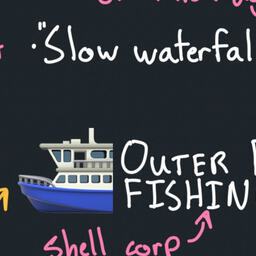 ·"Slow waterfal
OUTER
FISHIN
shell corp